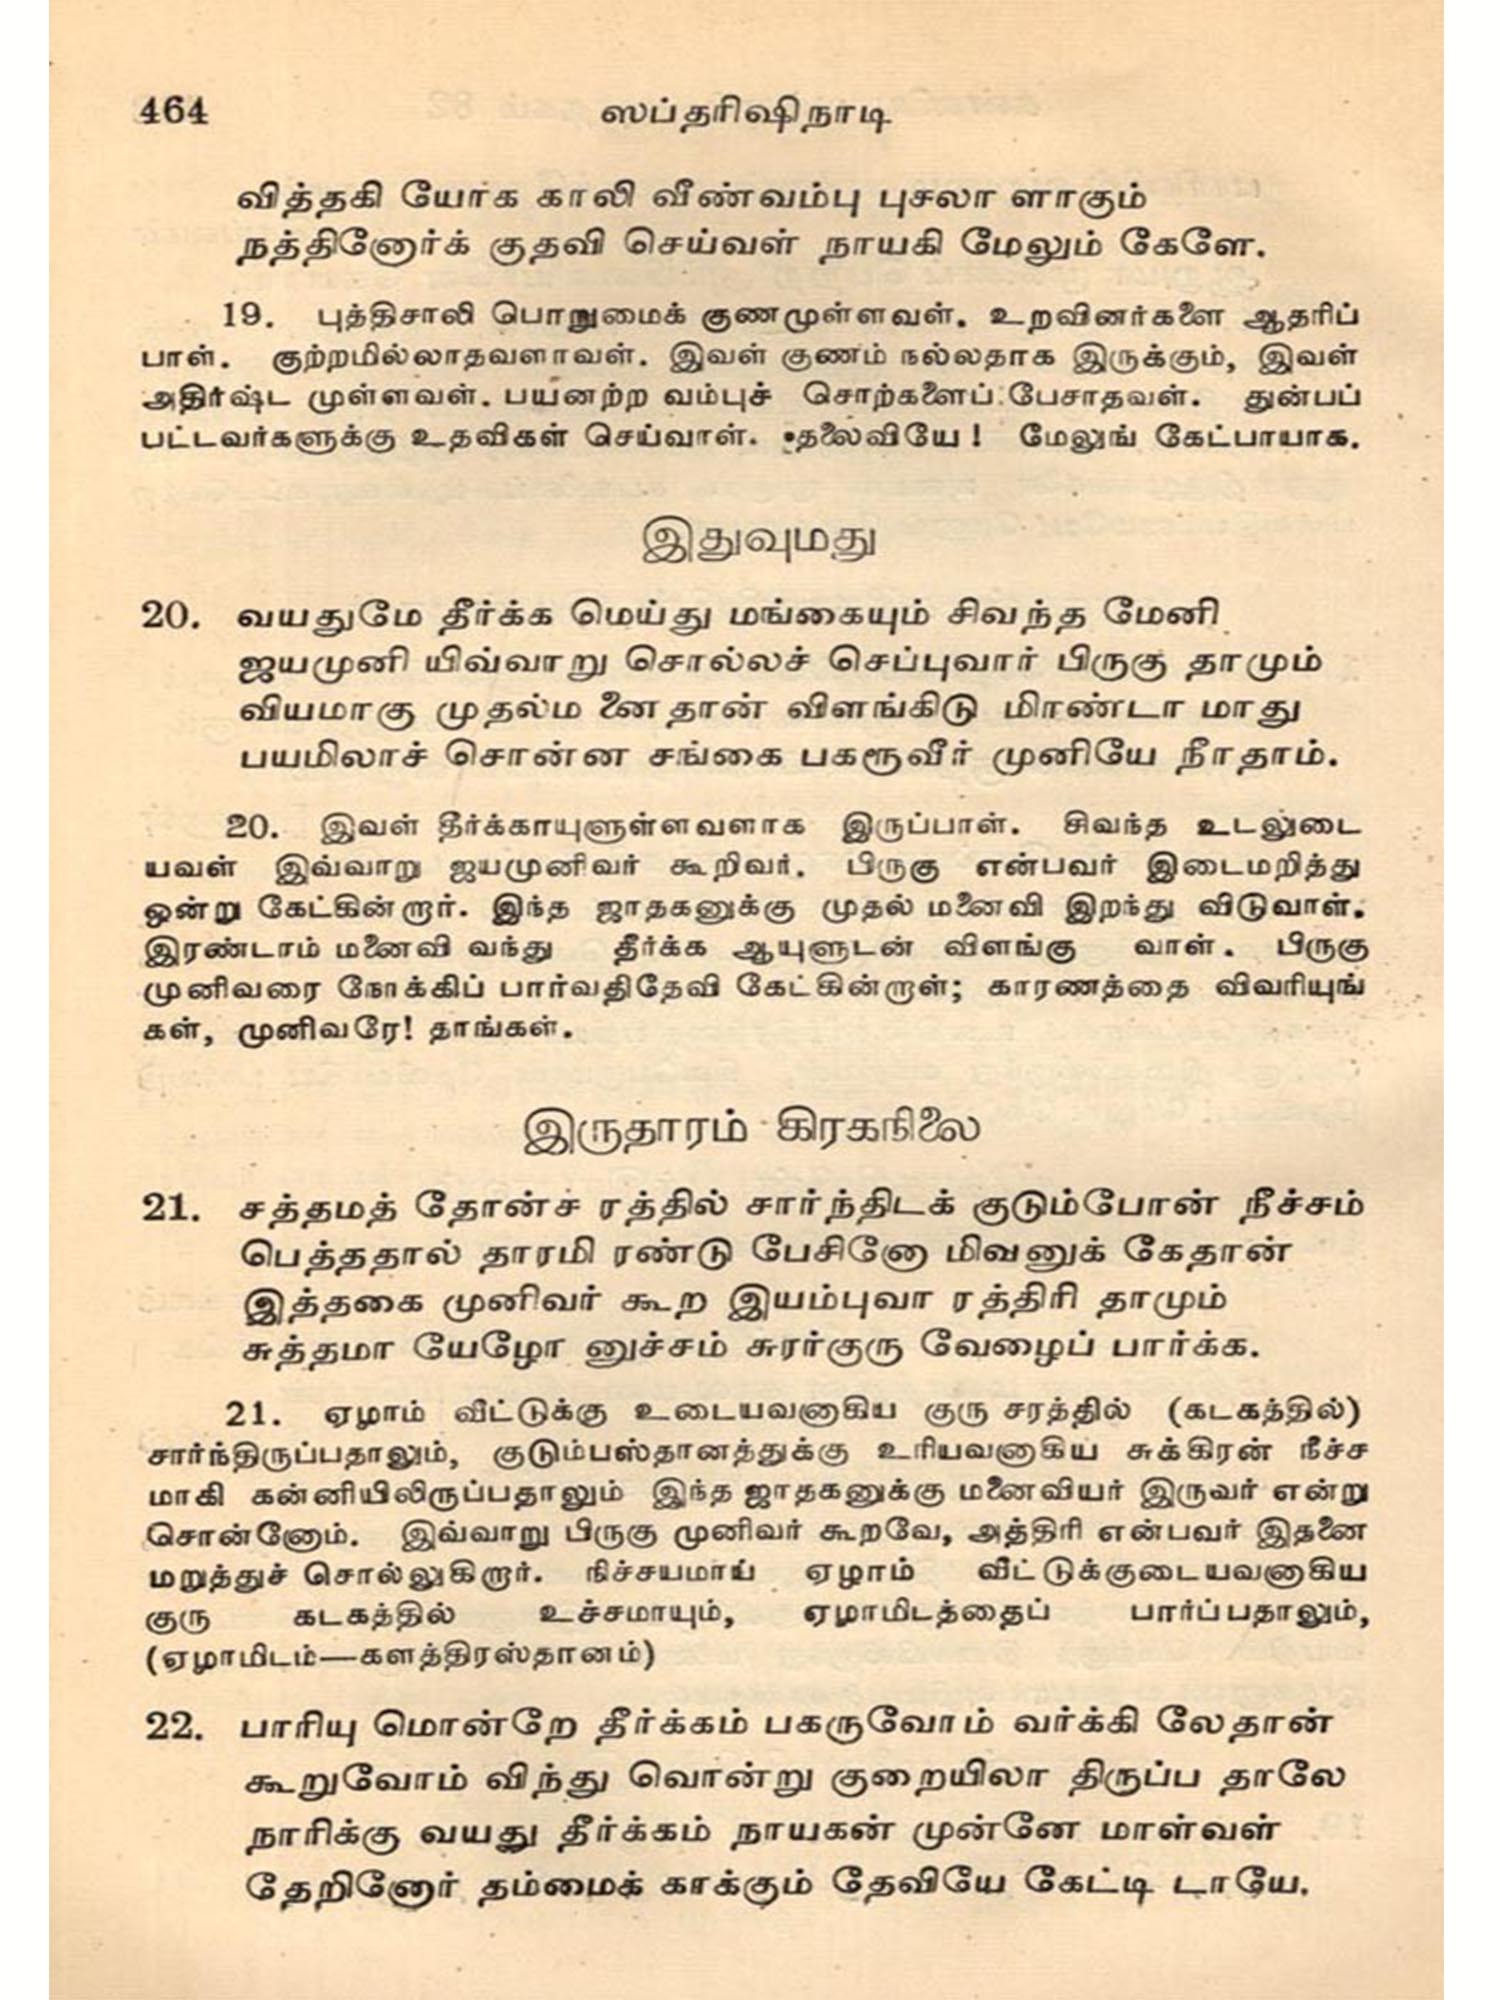 464 ஸப்தரிஷிநாடி
வித்தகி யோக காலி வீண்வம்பு புசலா ளாகும்
நத்தினோர்க் குதவி செய்வள் நாயகி மேலும் கேளே.
19. புத்திசாலி பொறுமைக் குணமுள்ளவள். உறவினர்களை ஆதரிப்
பாள். குற்றமில்லாதவளாவள். இவள் குணம் நல்லதாக இருக்கும், இவள்
அதிர்ஷ்ட முள்ளவள். பயனற்ற வம்புச் சொற்களைப் பேசாதவள். துன்பப்
பட்டவர்களுக்கு உதவிகள் செய்வாள். தலைவியே! மேலுங் கேட்பாயாக.
இதுவுமது
20. வயதுமே தீர்க்க மெய்து மங்கையும் சிவந்த மேனி
ஜயமுனி யிவ்வாறு சொல்லச் செப்புவார் பிருகு தாமும்
வியமாகு முதல்ம னைதான் விளங்கிடு மிரண்டா மாது
பயமிலாச் சொன்ன சங்கை பகரூவீர் முனியே நீரதாம்.
20. இவள் தீர்க்காயுளுள்ளவளாக இருப்பாள். சிவந்த உடலுடை
யவள் இவ்வாறு ஜயமுனிவர் கூறிவர். பிருகு என்பவர் இடைமறித்து
ஒன்று கேட்கின்றார். இந்த ஜாதகனுக்கு முதல் மனைவி இறந்து விடுவாள்.
இரண்டாம் மனைவி வந்து தீர்க்க ஆயுளுடன் விளங்கு வாள். பிருகு
முனிவரை நோக்கிப் பார்வதிதேவி கேட்கின்றாள்; காரணத்தை விவரியுங்
கள், முனிவரே! தாங்கள்.
இருதாரம் கிரகநிலை
21. சத்தமத் தோன்ச ரத்தில் சார்ந்திடக் குடும்போன் நீச்சம்
பெத்ததால் தாரமி ரண்டு பேசினோ மிவனுக் கேதான்
இத்தகை முனிவர் கூற இயம்புவா ரத்திரி தாமும்
சுத்தமா யேழோ னுச்சம் சுரர்குரு வேழைப் பார்க்க.
21. ஏழாம் வீட்டுக்கு உடையவனாகிய குரு சரத்தில் (கடகத்தில்)
சார்ந்திருப்பதாலும், குடும்பஸ்தானத்துக்கு உரியவனாகிய சுக்கிரன் நீச்ச
மாகி கன்னியிலிருப்பதாலும் இந்த ஜாதகனுக்கு மனைவியர் இருவர் என்று
சொன்னோம். இவ்வாறு பிருகு முனிவர் கூறவே, அத்திரி என்பவர் இதனை
மறுத்துச் சொல்லுகிறார். நிச்சயமாய் ஏழாம் வீட்டுக்குடையவனாகிய
குரு கடகத்தில் உச்சமாயும், ஏழாமிடத்தைப் பார்ப்பதாலும்,
(ஏழாமிடம்—களத்திரஸ்தானம்)
22. பாரியு மொன்றே தீர்க்கம் பகருவோம் வர்க்கி லேதான்
கூறுவோம் விந்து வொன்று குறையிலா திருப்ப தாலே
நாரிக்கு வயது தீர்க்கம் நாயகன் முன்னே மாள்வள்
தேறினோர் தம்மைக் காக்கும் தேவியே கேட்டி டாயே.